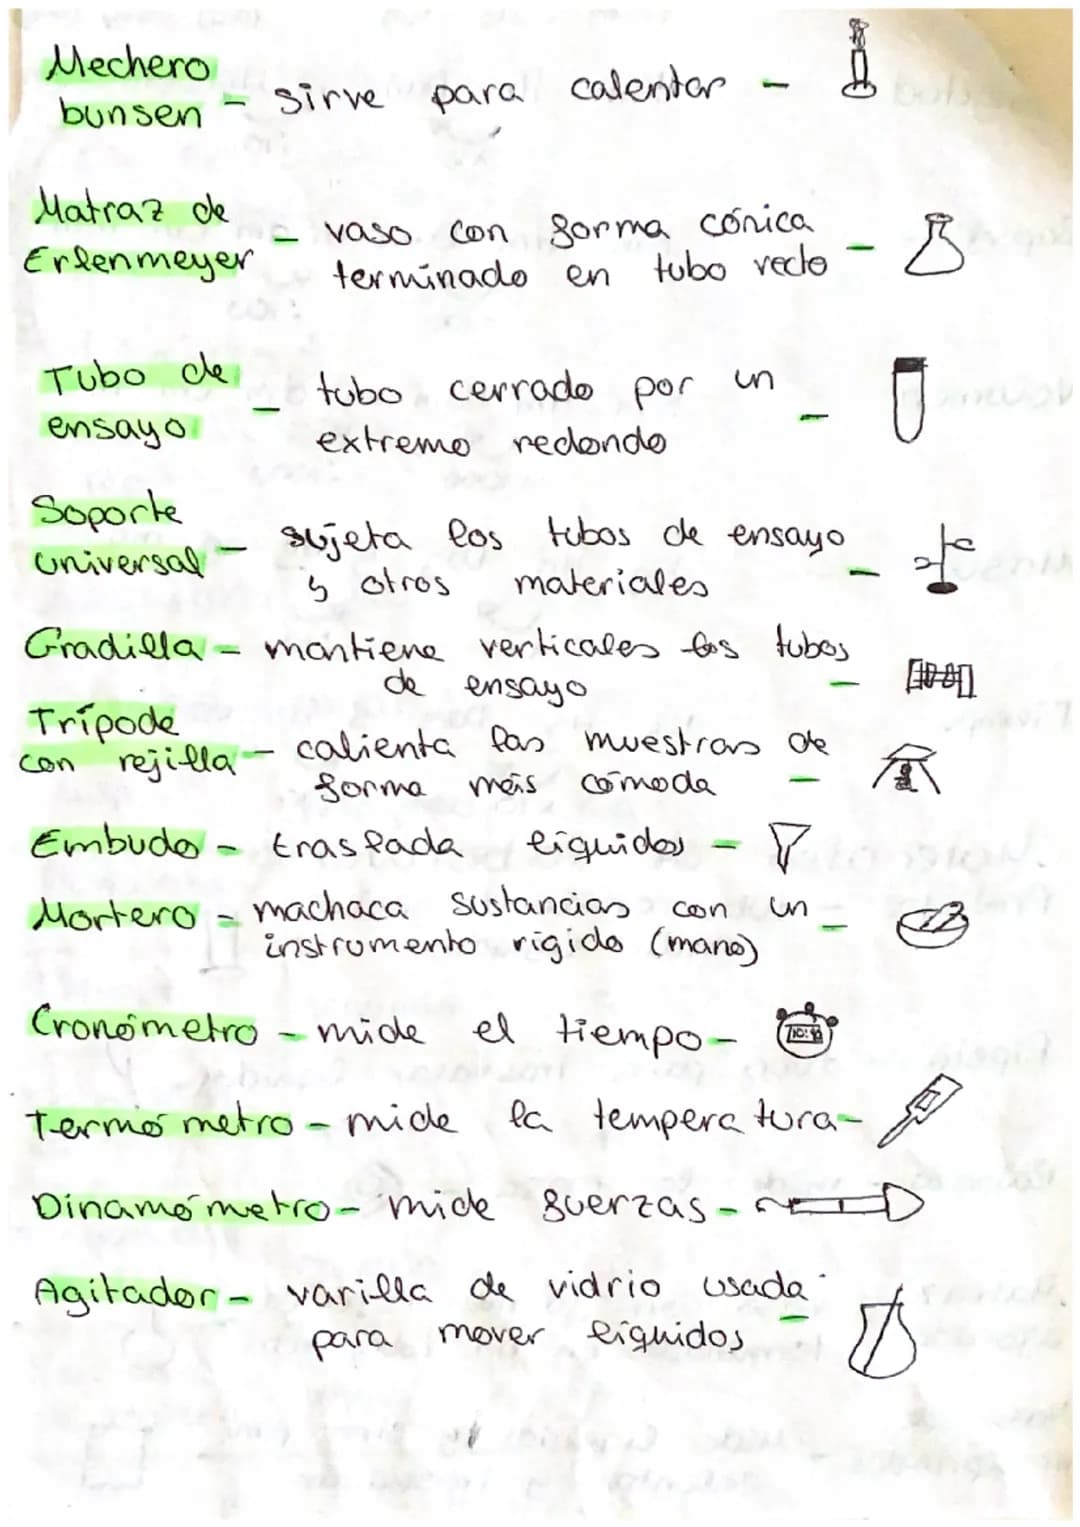 Mechero
bunsen - sirve para calentar -
Matraz de
Erlenmeyer - vaso con forma cónica
terminado en tubo recto -
Tubo de
ensayo - tubo cerrado por un
extremo redondo -
Soporte
universal - sujeta los tubos de ensayo
y otros materiales -
Gradilla - mantiene verticales los tubos
de ensayo -
Trípode
con rejilla - calienta las muestras de
forma más cómoda -
Embudo - traslada líquidos -
Mortero - machaca sustancias con un
instrumento rígido (mano) -
Cronómetro - mide el tiempo -
Termómetro - mide la temperatura -
Dinamómetro - mide fuerzas -
Agitador - varilla de vidrio usada
para mover líquidos -